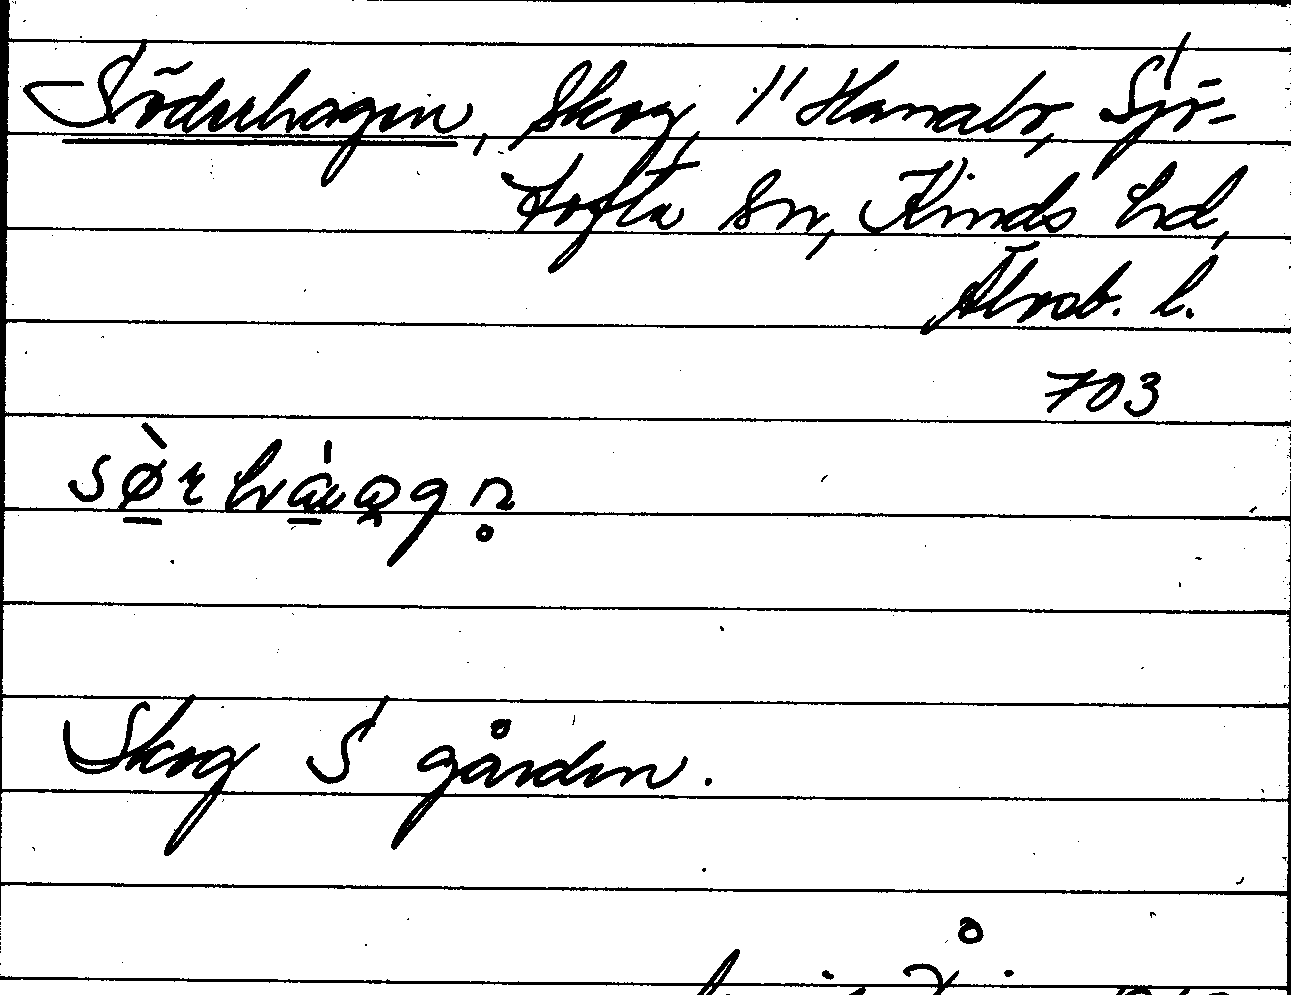 Söderhagen, Skog, 1/1 Hanabo, Sjö-
tofta sn, Kinds hd,
Älvsb. l.
703
Skog S gården.